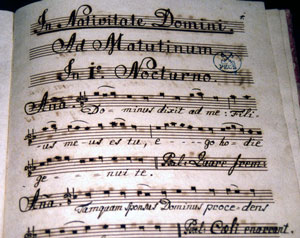 In Nativitate Domini
Ad Matutinum
In I.º Nocturno.
Ana. Do- minus dixit ad me: Fili-
us me-us es tu, e - - - go ho die
ge - nui te. Psal: Quare frem.
Ana. Tamquam sponsus Dominus procedens
Psal: Celi enarrant.